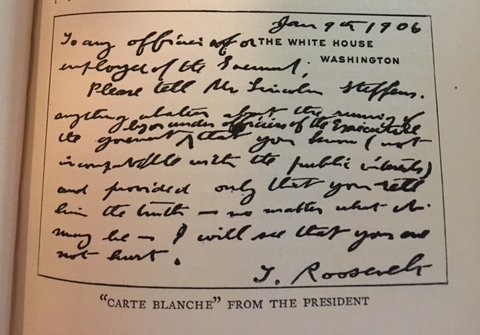 Jan 9th 1906
To any officer of or THE WHITE HOUSE
WASHINGTON
employee of the Government;
Please tell Mr Lincoln Steffens.
anything whatever about the running of
by or under officers of the Executive
the government that you know (not
incompatible with the public interests)
and provided only that you tell
him the truth — no matter what it
may be — I will see that you are
not hurt.
T. Roosevelt
"CARTE BLANCHE" FROM THE PRESIDENT